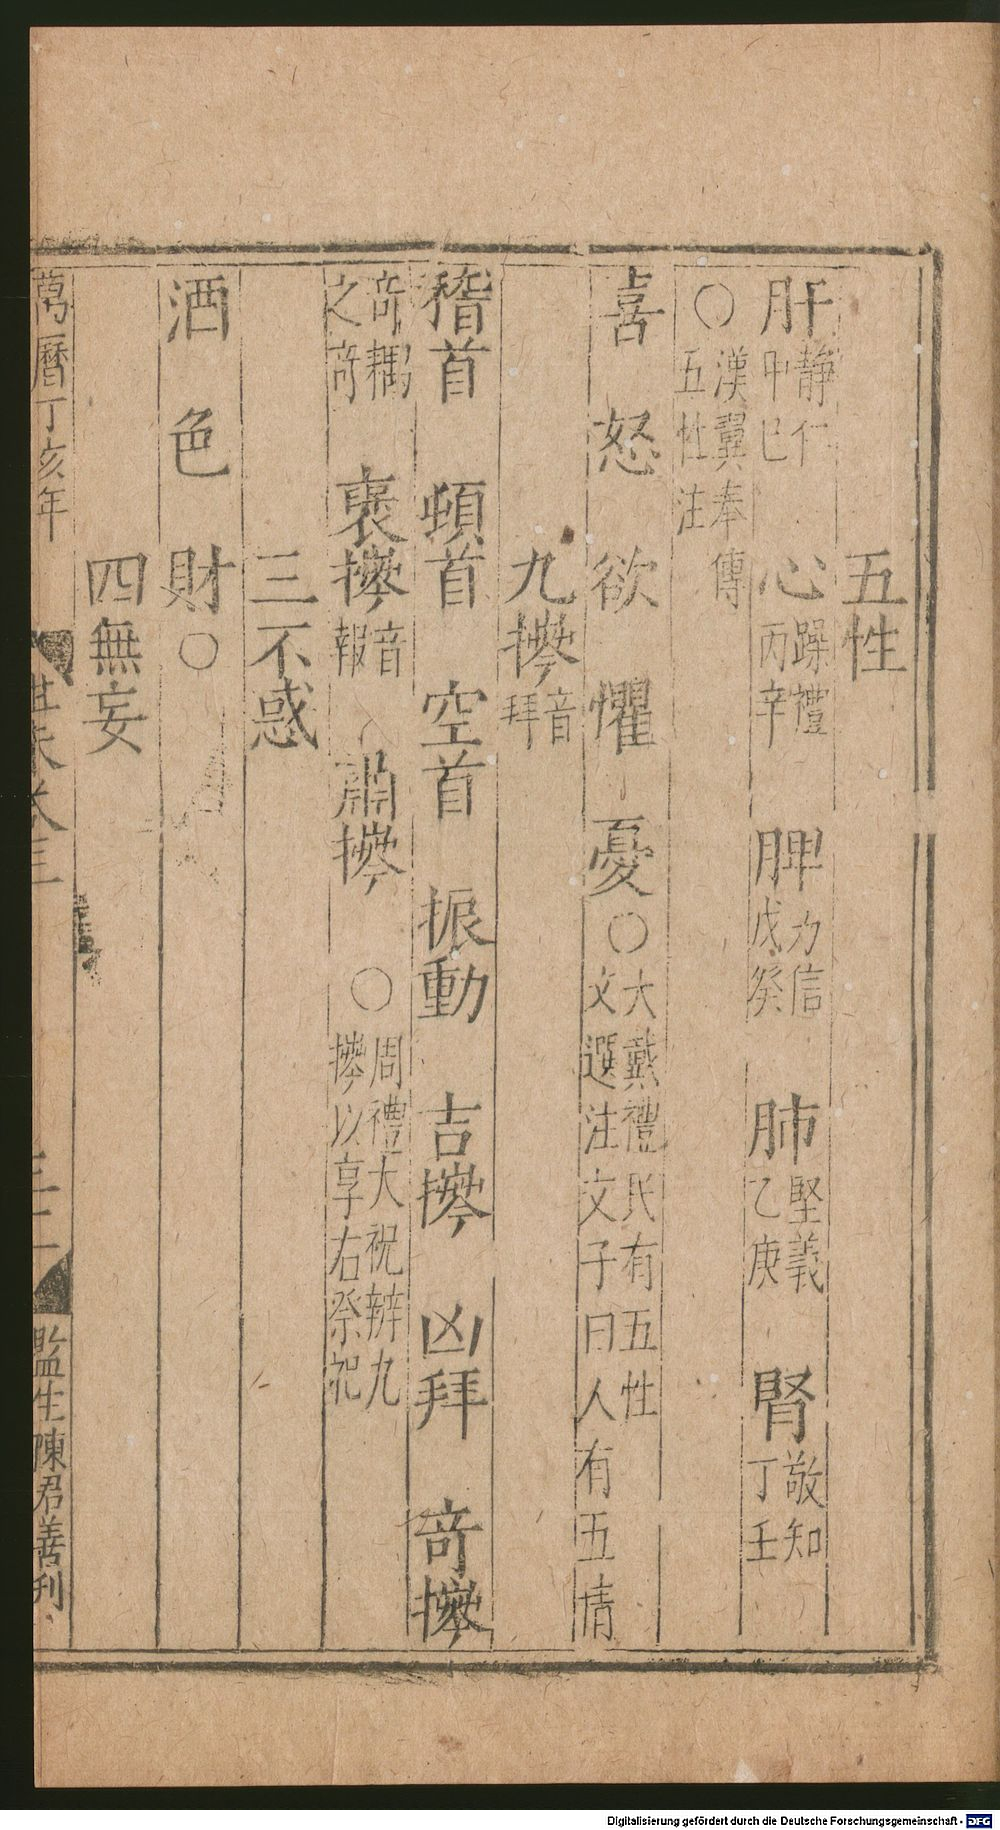 五性
肝 静仁甲巳 心 躁禮丙辛 脾 力信戊癸 肺 堅義乙庚 腎 敬知丁壬
○ 漢翼奉傳五性注
喜 怒 欲 懼 憂 ○ 大戴禮民有五性文選注文子曰人有五情
九㩓 音拜
稽首 頓首 空首 振動 吉㩓 凶拜 奇㩓
奇耦之奇 褒㩓 音報 肅㩓 ○ 周禮大祝辨九㩓以享右祭祀
三不惑
酒 色 財 ○
四無妄
萬曆丁亥年
卷三
監生陳君善刋
Digitalisierung gefördert durch die Deutsche Forschungsgemeinschaft - DFG